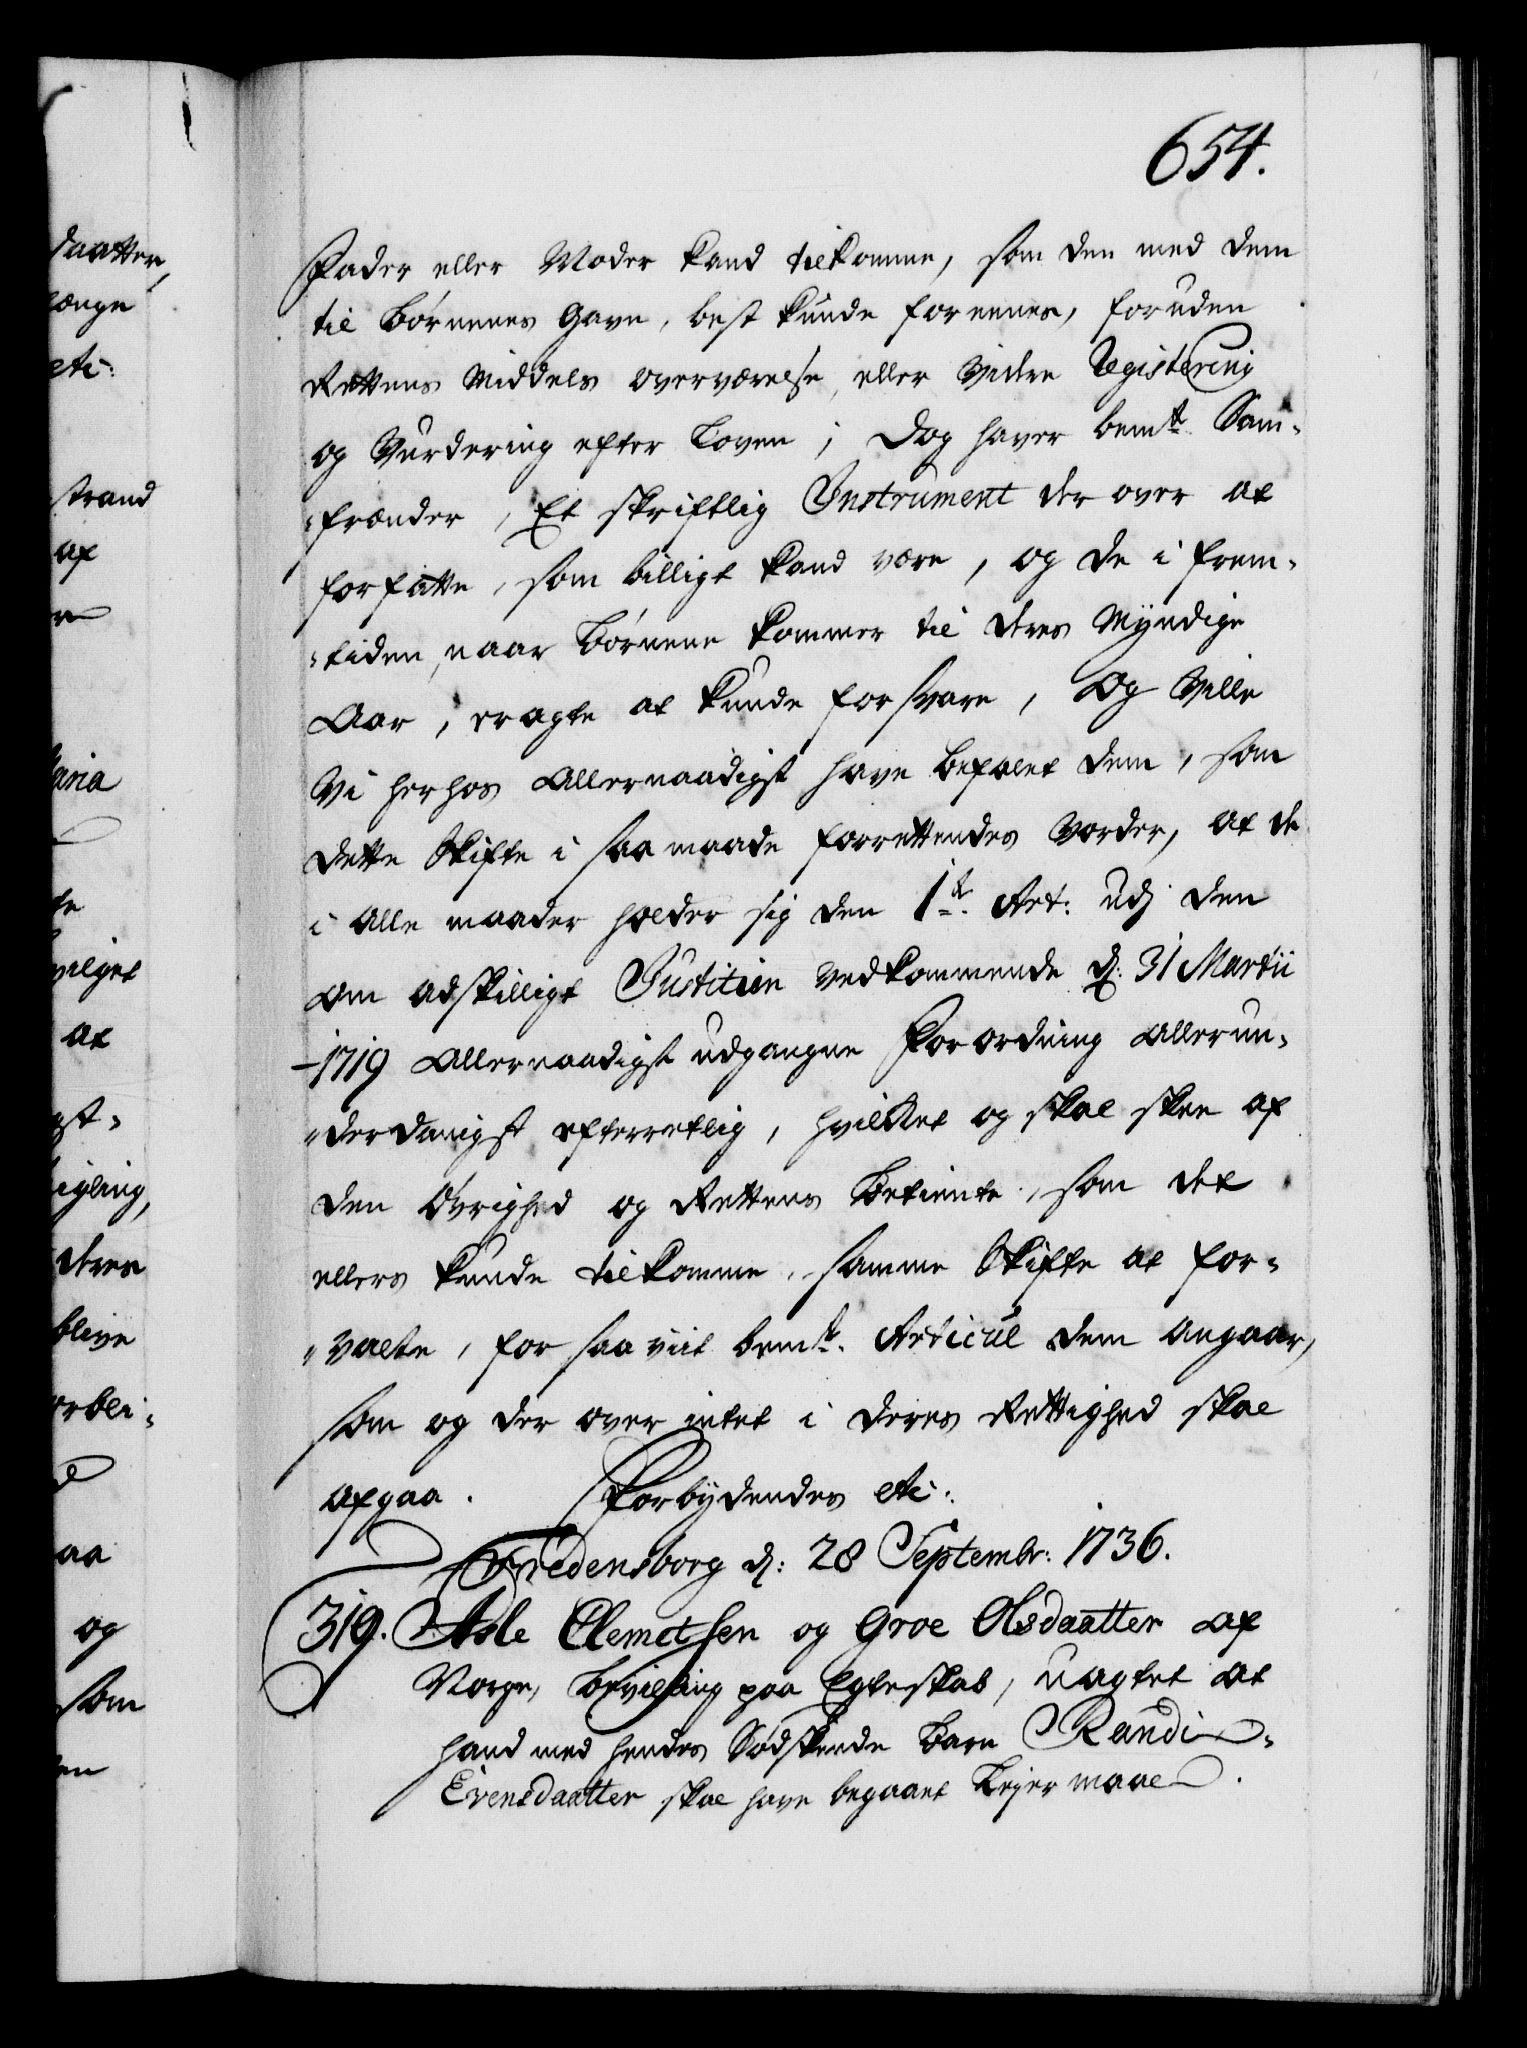 654.
Fader eller Moder kand tilkomme, som den med dem
til Børnenes Gavn, best kunde foreenes, foruden
Rettens Middels overværelse, eller Videre Registering
og Vurdering efter Loven; Dog haver bemte Sam-
frænder, Et skriftlig Instrument der over at
forfatte, som billigt kand være, og de i frem-
tiden, naar Børnene kommer til deres Myndige
Aar, eragte at kunde forsvare, Og Ville
Vi herhos Allernaadigst have befalet dem, som
dette Skifte i saa maade forrettendes vorder, at de
i alle maader holder sig den 1te. Art: udj den
om adskilligt Justitien vedkommende d: 31 Martii
1719 Allernaadigst udgangne Forordning allerun-
derdanigst efterretlig, hvilket og skal skee af
den Øvrighed og Rettens Betiente, som det
ellers kunde tilkomme, samme Skifte at for-
valte, for saa viit bemte. Articul dem angaar,
som og der over intet i deres Rettighed skal
afgaa. Forbydendes etc:
Fredensborg d: 28 Septembr: 1736.
319. Asle Clemetsen og Groe Olsdaatter af
Norge, bevilling paa Egteskab, uagtet at
hand med hendes Sødskende Barn Randi
Evensdaatter skal have begaaet Lejermaal.
daatter,
længe
etc:
strand
af
Maria
vilget
at
gst-
igling,
deres
blive
orbli-
aa
og
som